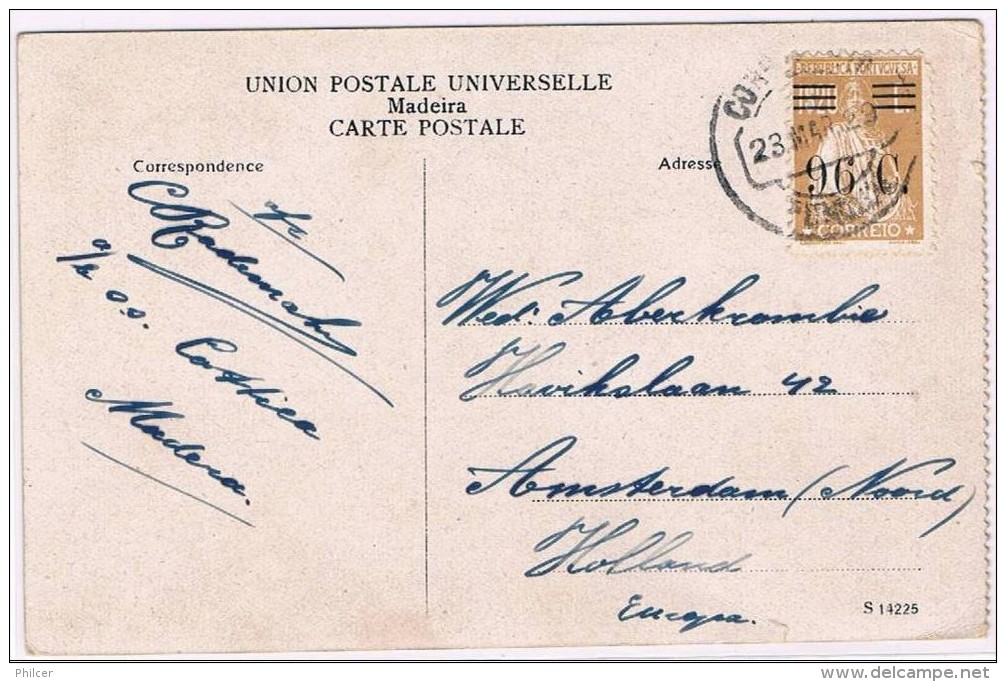 UNION POSTALE UNIVERSELLE
Madeira
CARTE POSTALE
Correspondence
Adresse
REPUBLICA PORTUGUESA
23 MAR 29
96 C.
CORREIO
a/b s.s. Cottica
Madera.
Wed: Aberkrombie
Havikslaan 42
Amsterdam (Noord)
Holland
Europa.
S 14225
Philcer
www.delcampe.net